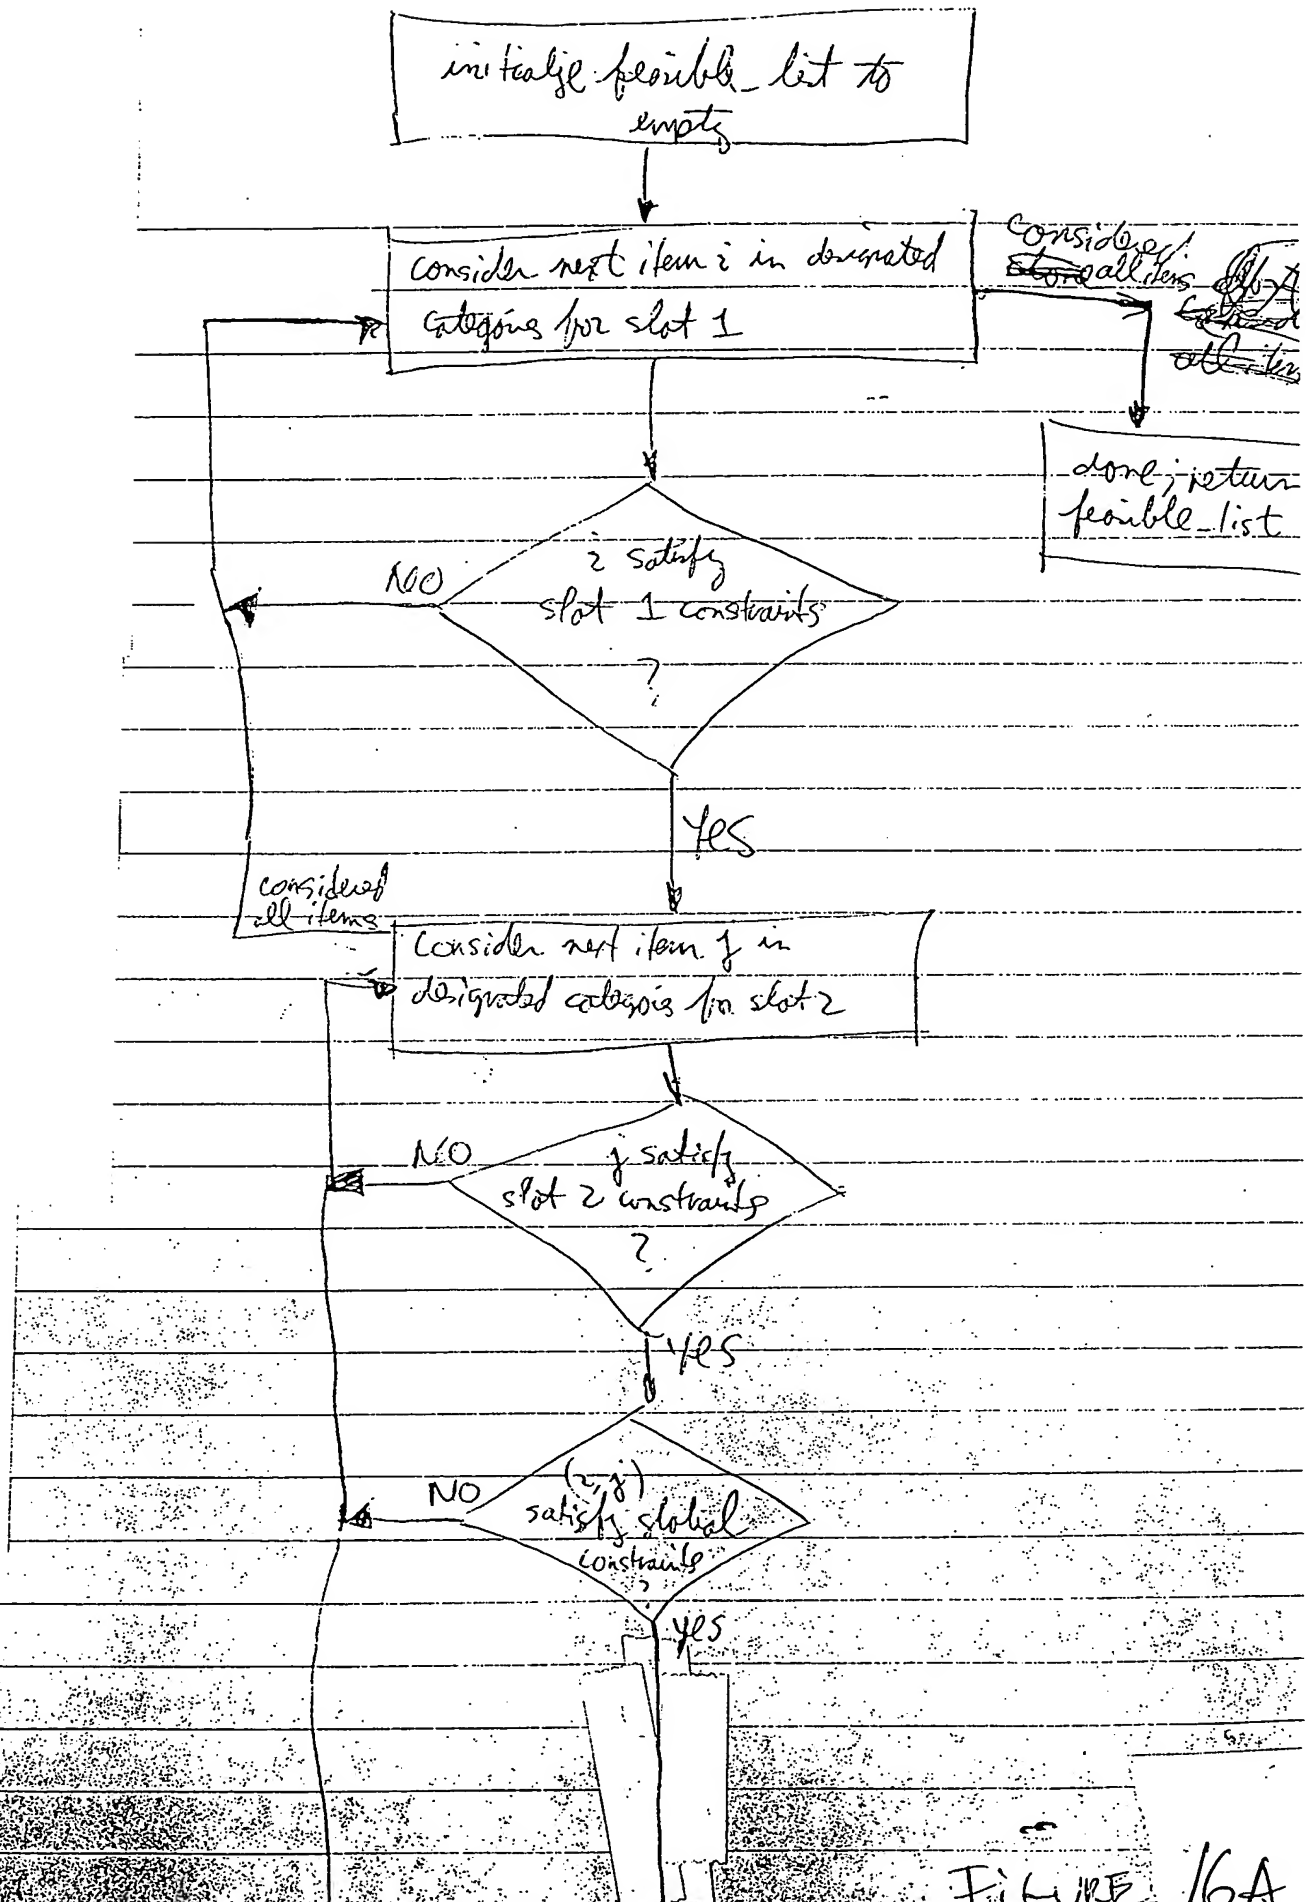 initialize feasible_list to
empty
consider next item i in designated
categories for slot 1
considered
all items
done; return
feasible_list
i satisfy
slot 1 constraints
?
NO
YES
considered
all items
Consider next item j in
designated categories for slot 2
j satisfy
slot 2 constraints
?
NO
YES
(i, j)
satisfy global
constraints
?
NO
yes
FIGURE 16A